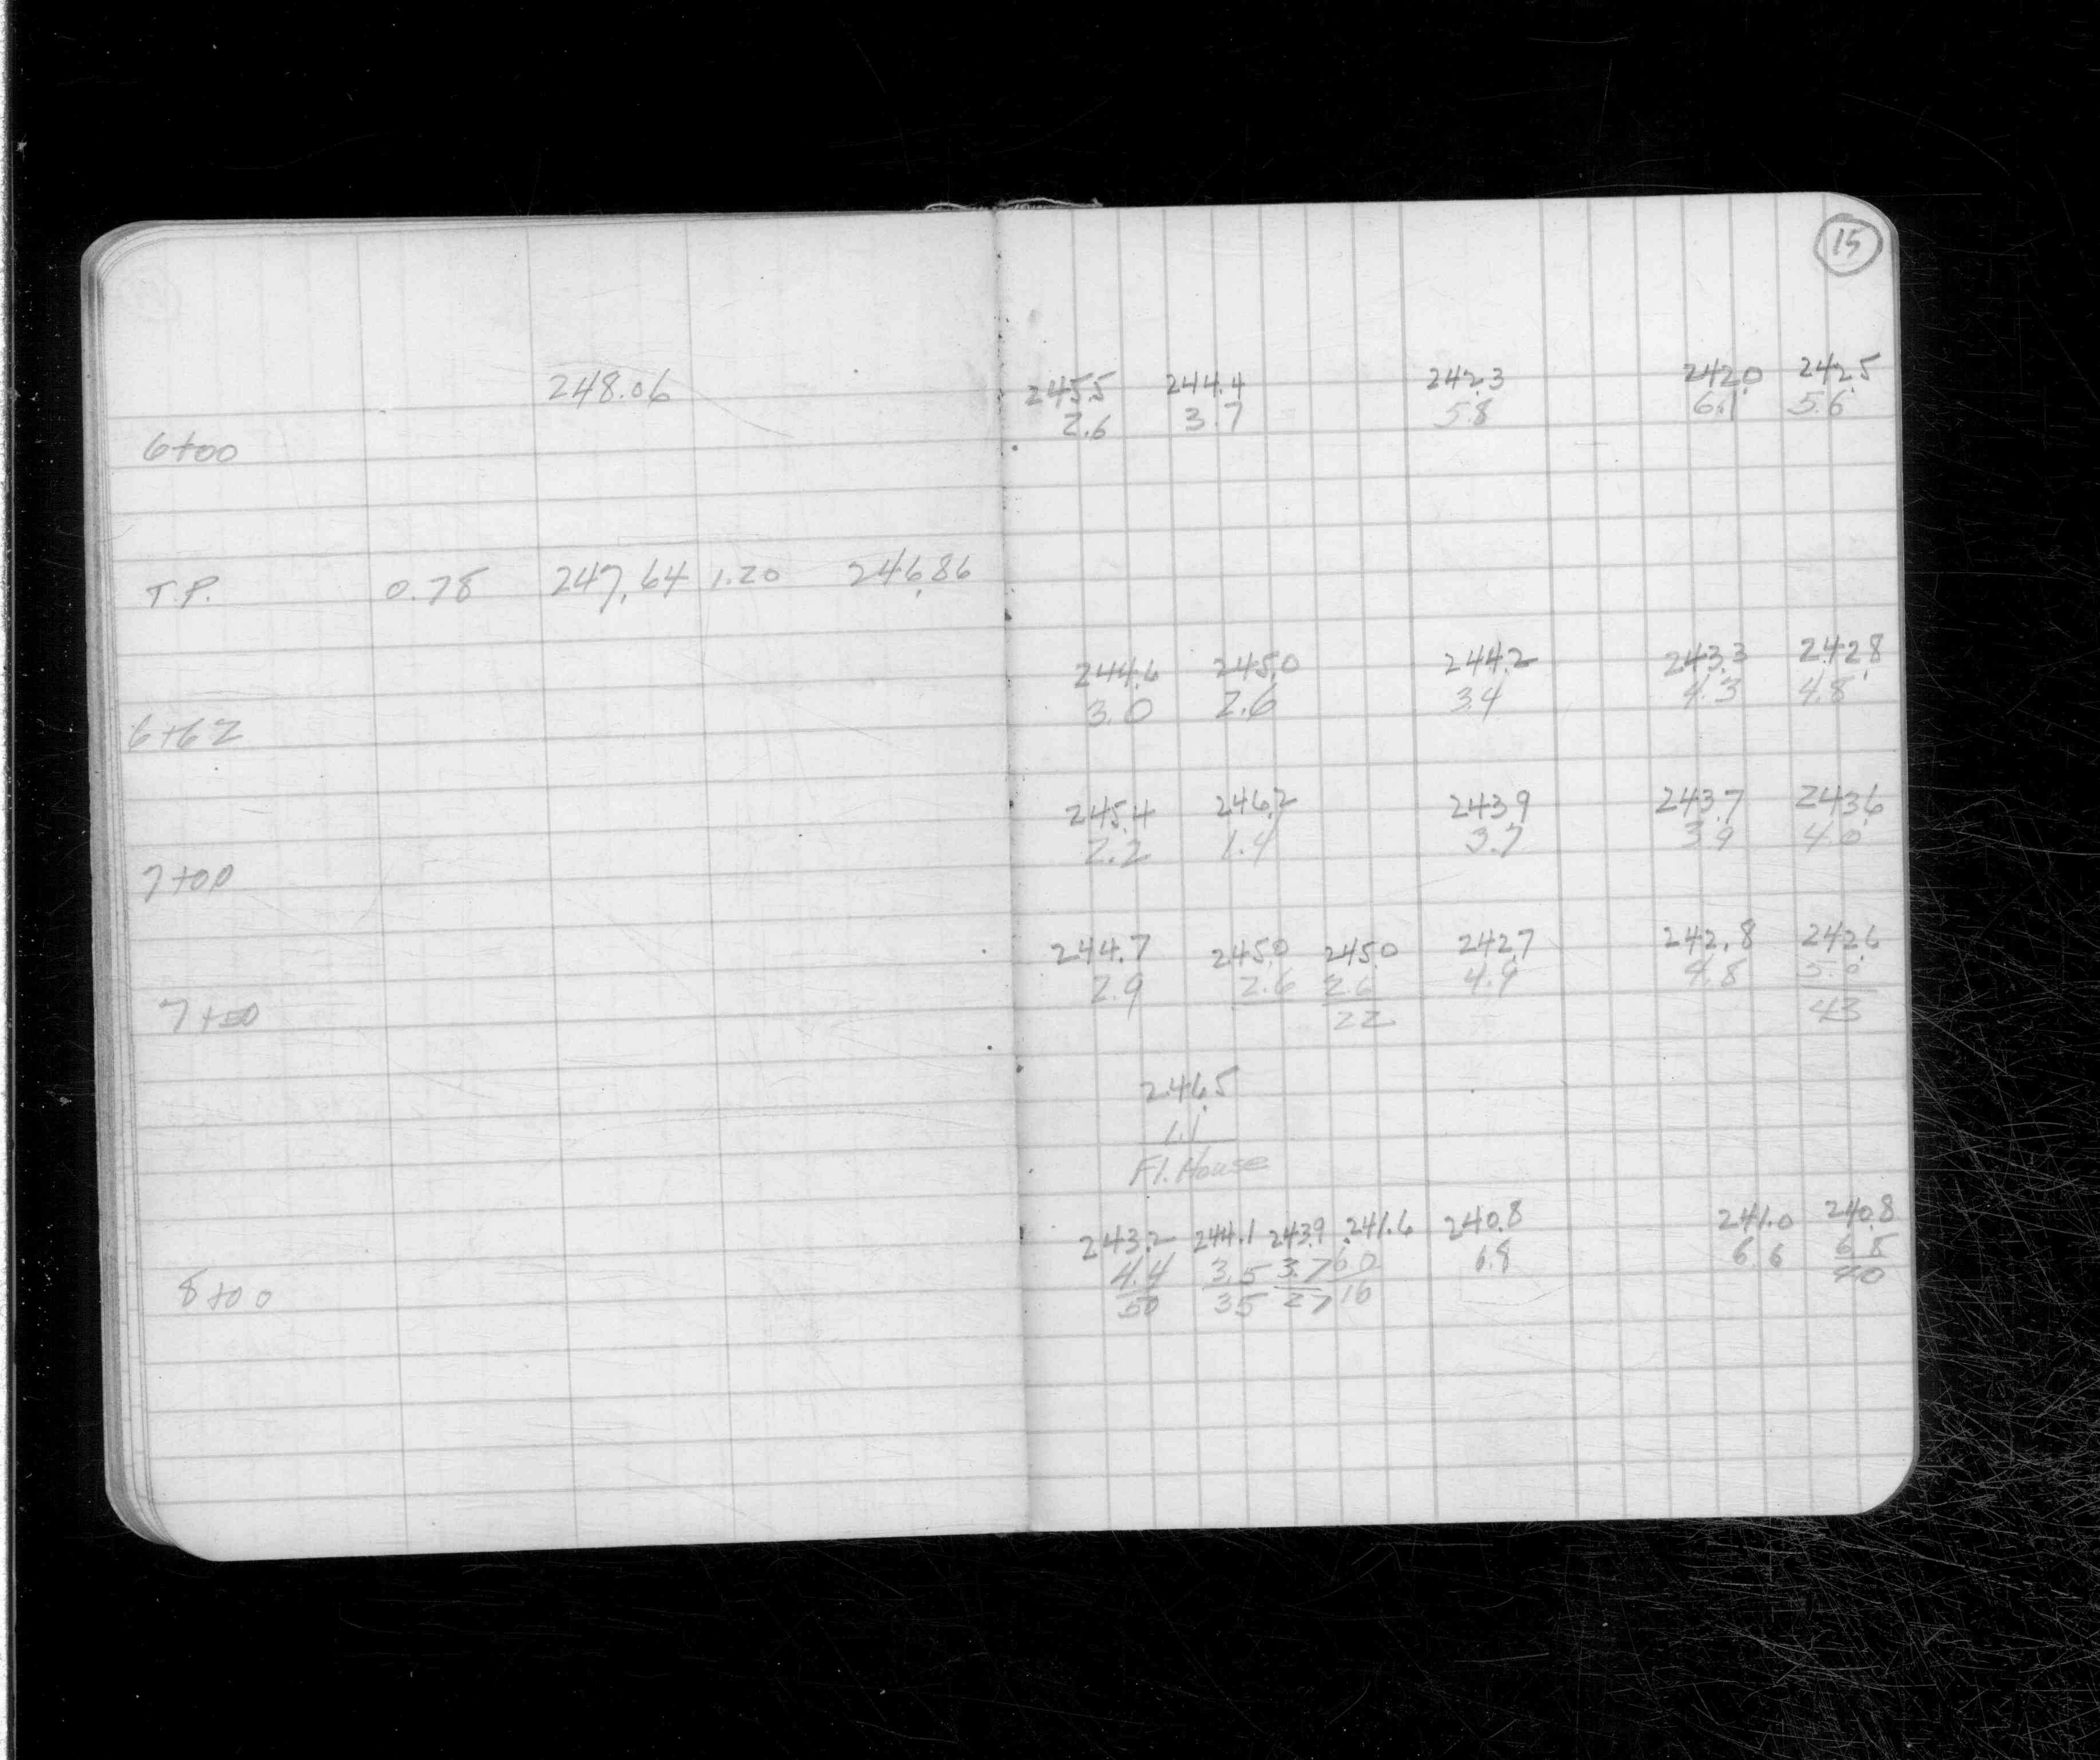 15
248.06
6+00
T.P. 0.78 247.64 1.20 246.86
6+62
7+00
7+50
8+00
245.5 244.4 242.3 242.0 242.5
2.6 3.7 5.8 6.1 5.6
244.6 245.0 244.2 243.3 242.8
3.0 2.6 3.4 4.3 4.8
245.4 246.2 243.9 243.7 243.6
2.2 1.4 3.7 3.9 4.0
244.7 245.0 245.0 242.7 242.8 242.6
2.9 2.6 2.6 4.9 4.8 5.0
22 43
246.5
1.1
Fl. House
243.2 244.1 243.9 241.6 240.8 241.0 240.8
4.4 3.5 3.7 6.0 6.8 6.6 6.8
50 35 27 16 70